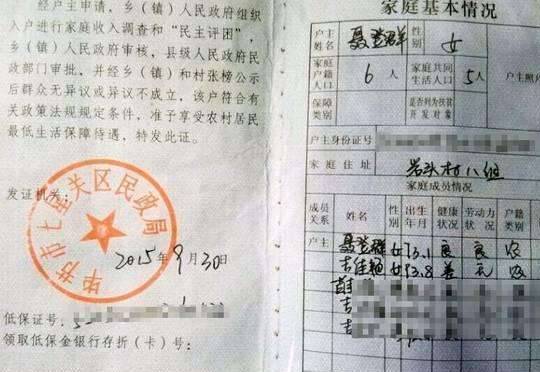 经户主申请，乡（镇）人民政府组织
入户进行家庭收入调查和“民主评困”，
乡（镇）人民政府审核，县级人民政府民
政部门审批，并经乡（镇）和村张榜公示
后群众无异议或异议不成立，该户符合有
关政策法规规定条件，准予享受农村居民
最低生活保障待遇，特发此证。
发证机关：
毕节市七星关区民政局
2015年9月30日
低保证号：
领取低保金银行存折（卡）号：
家庭基本情况
户主姓名 聂登群 性别 女
家庭户籍人口 6人 家庭共同生活人口 5人 户主照
保障类别 是否列为扶贫开发对象
户主身份证号
家庭住址 岩头村八组
家庭成员情况
成员关系 姓名 性别 出生年月 健康状况 劳动力状况 户籍类别
户主 聂登群 女 73.1 良 良 农
女 93.8 差 无 农